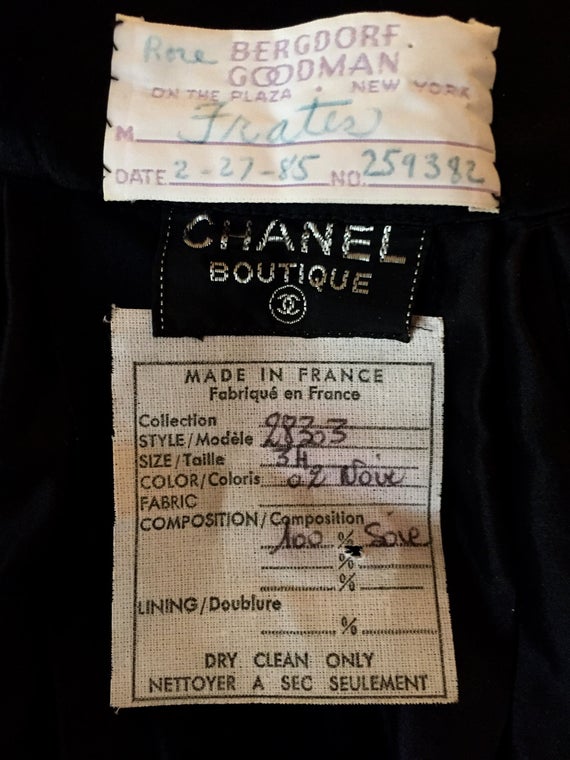 Rose BERGDORF
GOODMAN
ON THE PLAZA . NEW YORK
M Frates
DATE 2-27-85 NO. 259382
CHANEL
BOUTIQUE
MADE IN FRANCE
Fabriqué en France
Collection
STYLE/Modèle 28303
SIZE/Taille 34
COLOR/Coloris 02 Noir
FABRIC
COMPOSITION/Composition
100 % Soie
%
%
LINING/Doublure
%
DRY CLEAN ONLY
NETTOYER A SEC SEULEMENT